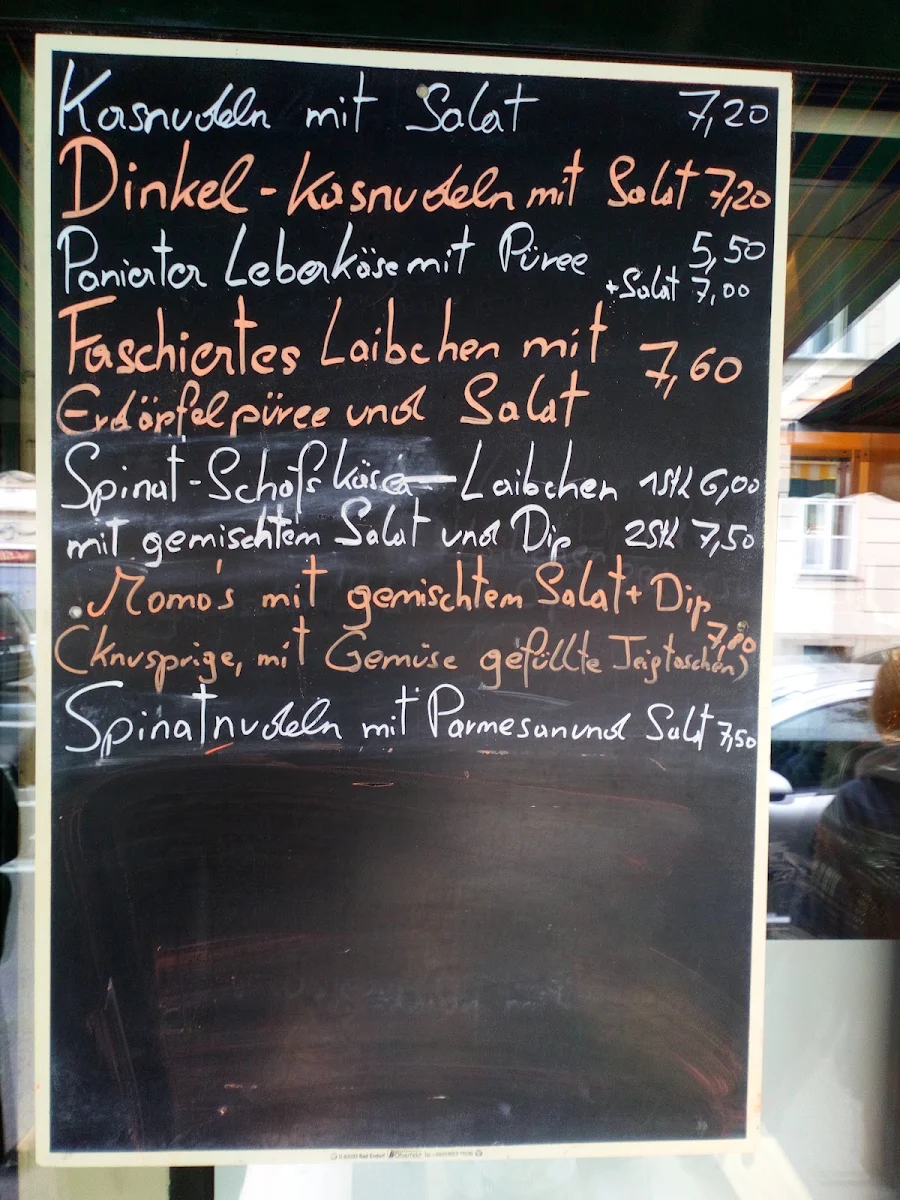 Kasnudeln mit Salat 7,20
Dinkel-Kasnudeln mit Salat 7,20
Panierter Leberkäse mit Püree 5,50
+Salat 7,00
Faschiertes Laibchen mit 7,60
Erdäpfelpüree und Salat
Spinat-Schafskäse-Laibchen 1Stk 6,00
mit gemischtem Salat und Dip 2Stk 7,50
Momo's mit gemischtem Salat + Dip
7,80
(Knusprige, mit Gemüse gefüllte Teigtaschen)
Spinatnudeln mit Parmesan und Salat 7,50